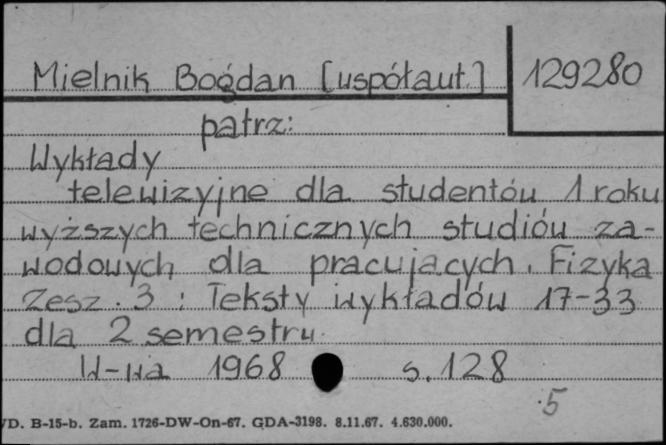 Mielnik Bogdan [współaut.] 129280
patrz:
Wykłady
telewizyjne dla studentów 1 roku
wyższych technicznych studiów za-
wodowych dla pracujących. Fizyka
Zesz. 3 : Teksty wykładów 17-33
dla 2 semestru.
W-wa 1968 s. 128
.5
/D. B-15-b. Zam. 1726-DW-On-67. GDA-3198. 8.11.67. 4.630.000.